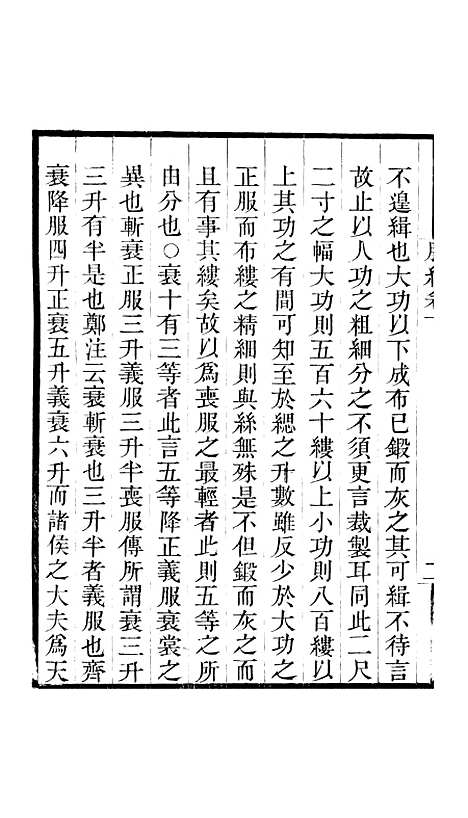 不遑緝也大功以下成布已鍛而灰之其可緝不待言
故止以人功之粗細分之不須更言裁製耳同此二尺
二寸之幅大功則五百六十縷以上小功則八百縷以
上其功之有間可知至於緦之升數雖反少於大功之
正服而布縷之精細則與絲無殊是不但鍛而灰之而
且有事其縷矣故以爲喪服之最輕者此則五等之所
由分也○衰十有三等者此言五等降正義服衰裳之
異也斬衰正服三升義服三升半喪服傳所謂衰三升
三升有半是也鄭注云衰斬衰也三升半者義服也齊
衰降服四升正衰五升義衰六升而諸侯之大夫爲天